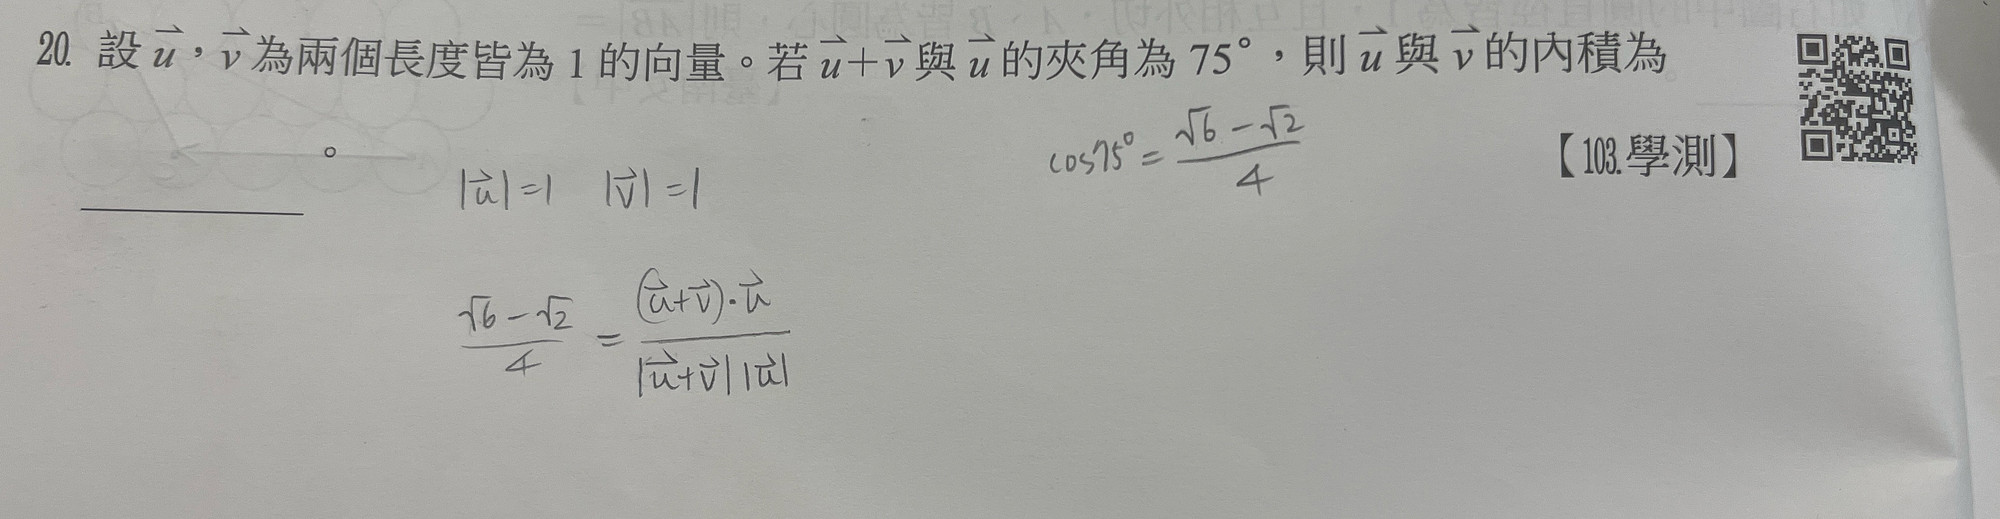 20. 設 u⃗，v⃗ 為兩個長度皆為 1 的向量。若 u⃗+v⃗ 與 u⃗ 的夾角為 75°，則 u⃗ 與 v⃗ 的內積為
。
【103.學測】
cos75° = (√6 − √2)/4
|u⃗| = 1 |v⃗| = 1
(√6 − √2)/4 = (u⃗+v⃗)·u⃗ / |u⃗+v⃗| |u⃗|